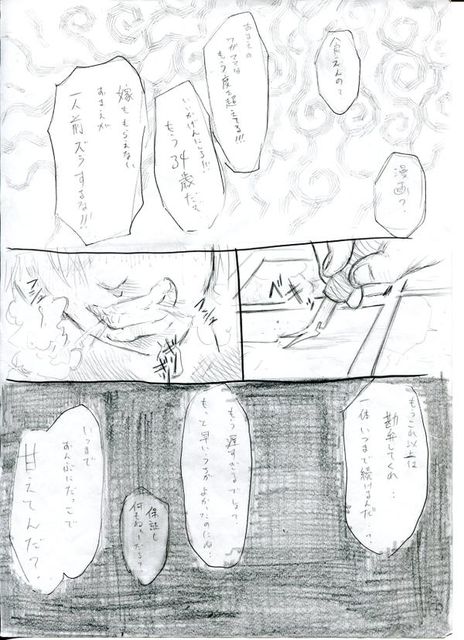 食えんの?
漫画?
おまえの
ワガママは
もう度を超えてる!!!
いいかげんにしろ!!!
もう34歳だぞ
嫁ももらわない
おまえが
一人前ズラするな!!!
もうこれ以上は
勘弁してくれ…
一体いつまで続けるんだ…?
もう遅すぎるでしょ?
もっと早いうちがよかったのにね…
保証も
何もねーしだ…?
いつまで
おんぶにだっこで
甘えてんだ?